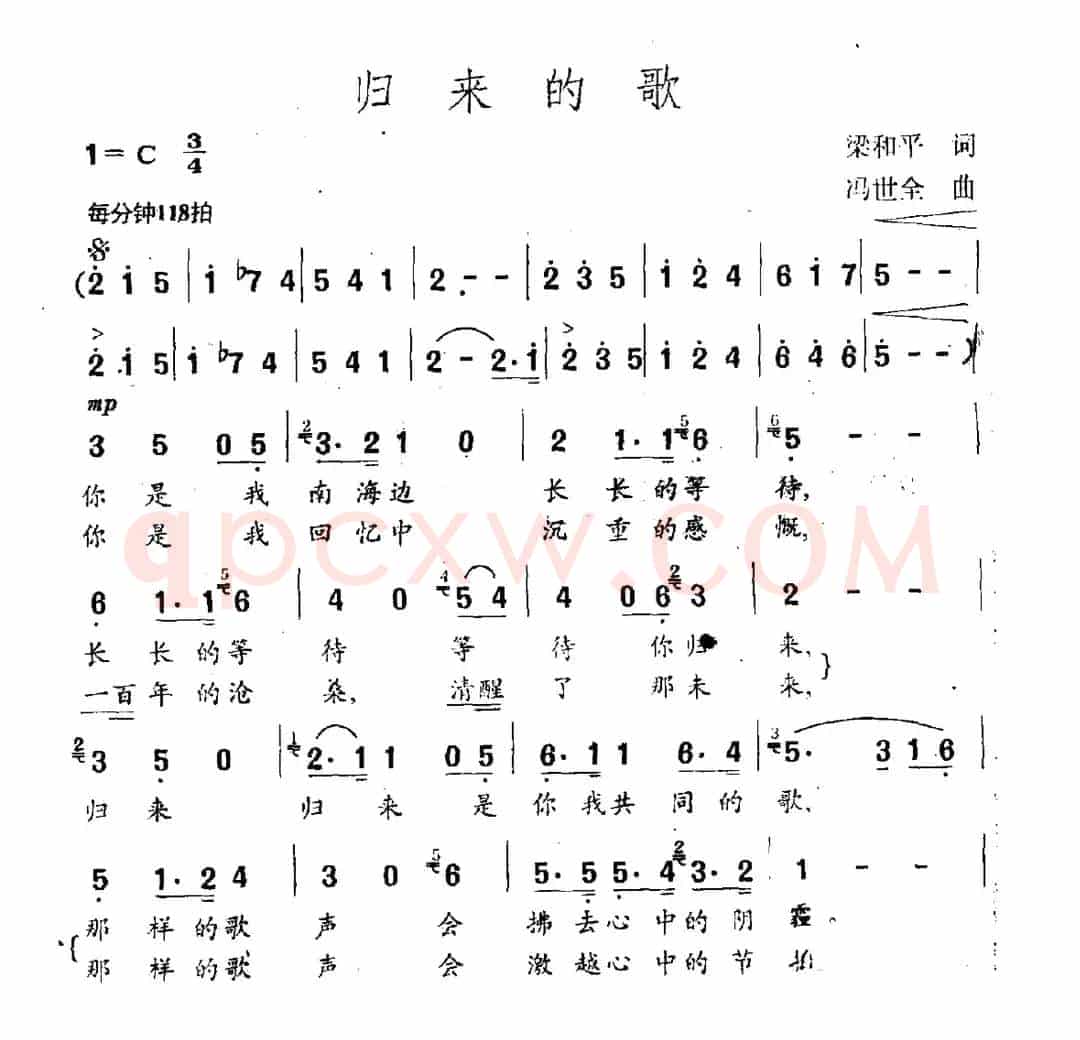 归来的歌
1=C 3/4
梁和平 词
冯世全 曲
每分钟118拍
(2 1 5 | 1 ♭7 4 | 5 4 1 | 2 - - | 2 3 5 | 1 2 4 | 6 1 7 | 5 - - |
2 1 5 | 1 ♭7 4 | 5 4 1 | 2 - 2·1 | 2 3 5 | 1 2 4 | 6 4 6 | 5 - - )
mp
3 5 0 5 | 2 3·2 1 0 | 2 1·1 5 6 | 6 5 - - |
你是我南海边 长长的等待,
你是我回忆中 沉重的感慨,
qpcxw.COM
6 1·1 5 6 | 4 0 4 5 4 | 4 0 6 2 3 | 2 - - |
长长的等待 等待你归来,
一百年的沧桑, 清醒了那未来,
2 3 5 0 | 1 2·1 1 0 5 | 6·1 1 6·4 | 3 5· 3 1 6 |
归来 归来是你我共同的歌,
5 1·2 4 | 3 0 5 6 | 5·5 5·4 2 3·2 | 1 - - |
那样的歌声会拂去心中的阴霾。
那样的歌声会激越心中的节拍